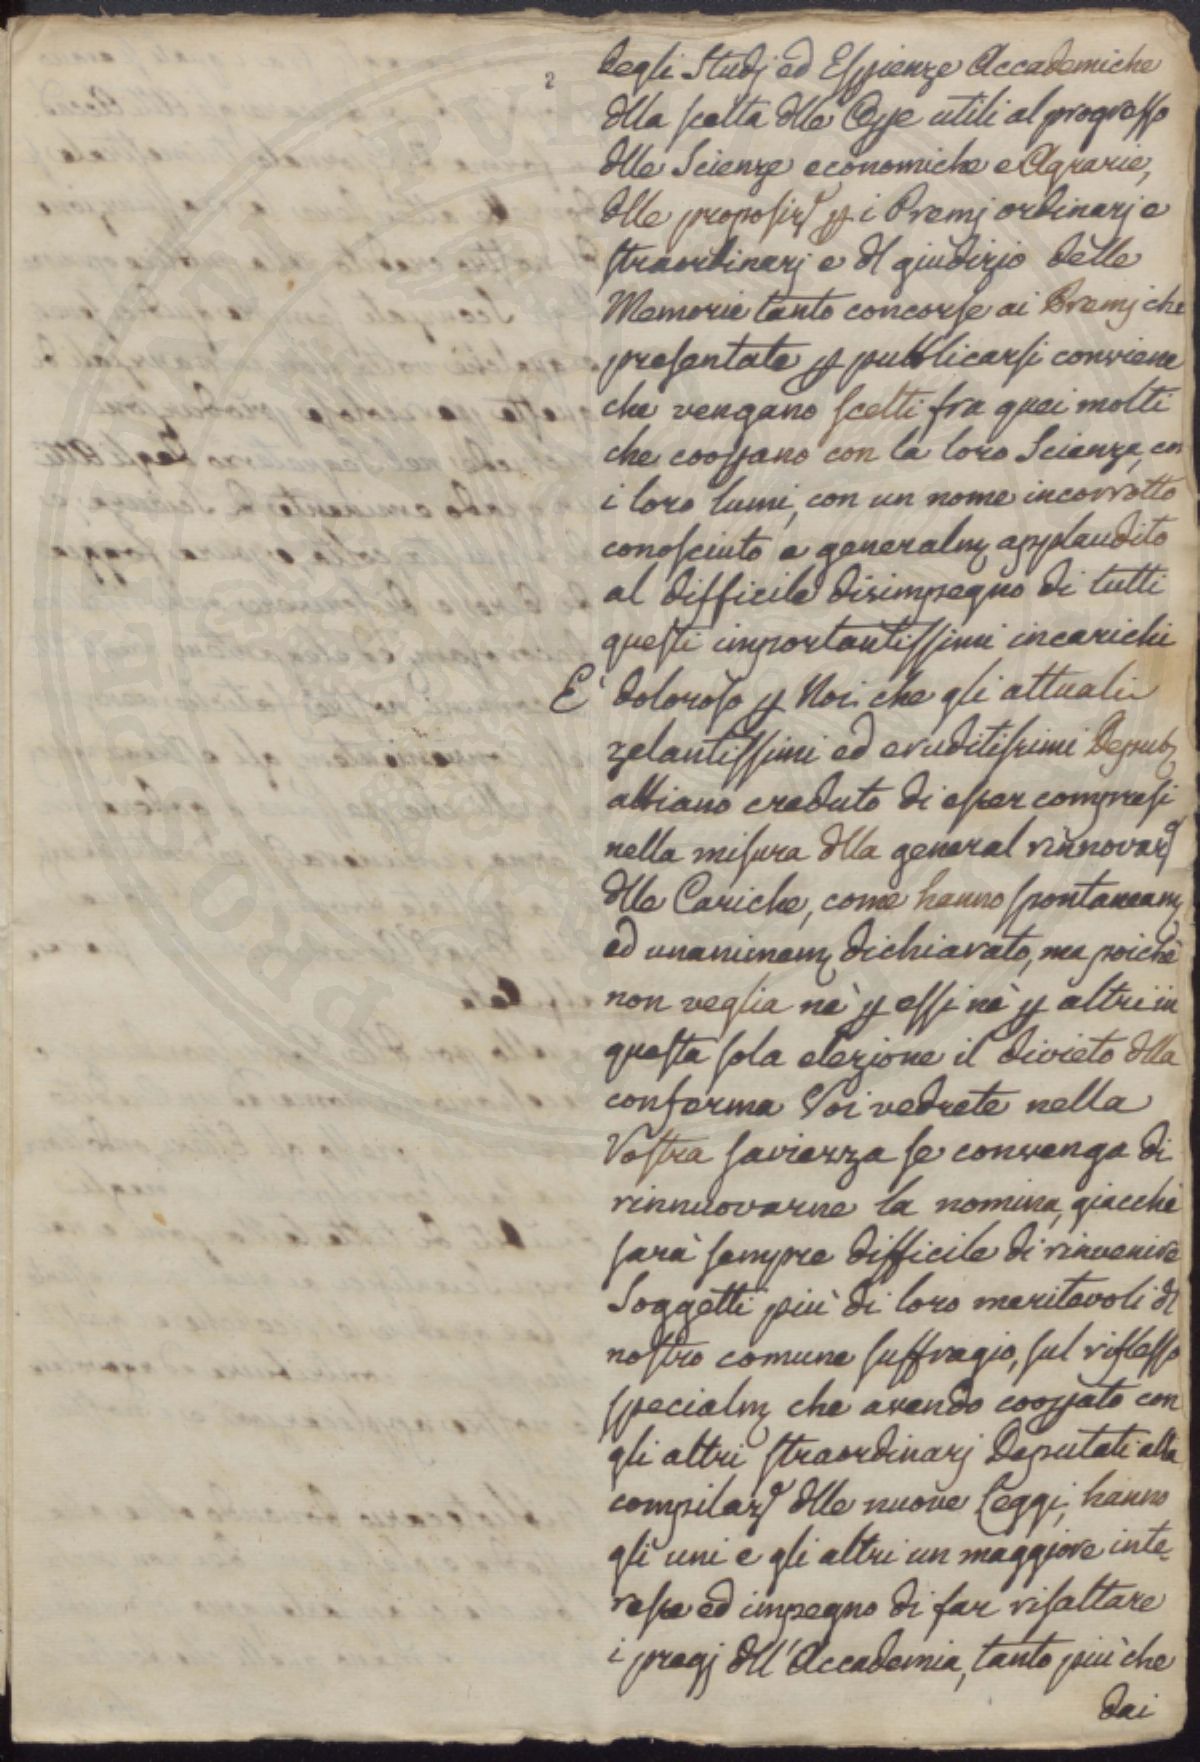 2
degli Studj ed Esp̄ienze Accademiche
dlla scelta dlle Opē utili al progresso
dlle Scienze economiche e Agrarie,
dlle proposizⁱ ꝑ i Premj ordinarj e
straordinarj e dl giudizio delle
Memorie tanto concorse ai Premj che
presentate ꝑ pubblicarsi conviene
che vengano scelti fra quei molti
che coop̄ano con la loro Scienza, con
i loro lumi, con un nome incorrotto
conosciuto e generalm̄ applaudito
al difficile disimpegno di tutti
questi importantissimi incarichi
E' doloroso ꝑ Noi che gli attuali
zelantissimi ed eruditissimi Deput̄
abbiano creduto di esser compresi
nella misura dlla general rinnovazᵉ
dlle Cariche, come hanno spontaneam̄
ed unanimem̄ dichiarato, ma poichè
non veglia nè ꝑ essi nè ꝑ altri in
questa sola elezione il divieto dlla
conferma Voi vedrete nella
Vostra saviezza se convenga di
rinnuovarne la nomina, giacchè
sarà sempre difficile di rinvenire
Soggetti più di loro meritevoli dl
nostro comune suffragio, sul riflesso
specialm̄ che avendo coop̄ato con
gli altri straordinarj Deputati alla
compilazᵉ dlle nuove Leggi, hanno
gli uni e gli altri un maggiore inte-
resse ed impegno di far risaltare
i pregj dll'Accademia, tanto più che
dai